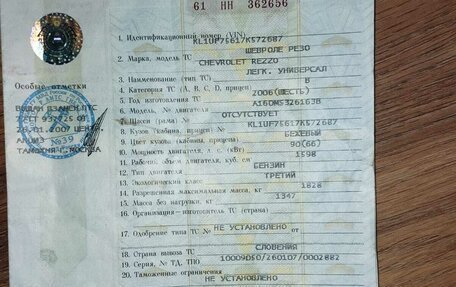 61 НН 362656
1. Идентификационный номер (VIN) KL1UF75617K572687
2. Марка, модель ТС ШЕВРОЛЕ РЕЗО
CHEVROLET REZZO
3. Наименование (тип ТС) ЛЕГК. УНИВЕРСАЛ
4. Категория ТС (A, B, C, D, прицеп) B
5. Год изготовления ТС 2006(ШЕСТЬ)
6. Модель, № двигателя A16DMS326163B
7. Шасси (рама) № ОТСУТСТВУЕТ
8. Кузов (кабина, прицеп) № KL1UF75617K572687
9. Цвет кузова (кабины, прицепа) БЕЖЕВЫЙ
10. Мощность двигателя, л. с. (кВт) 90(66)
11. Рабочий объем двигателя, куб. см 1598
12. Тип двигателя БЕНЗИН
13. Экологический класс ТРЕТИЙ
14. Разрешенная максимальная масса, кг 1828
15. Масса без нагрузки, кг 1347
16. Организация—изготовитель ТС (страна)
17. Одобрение типа ТС № НЕ УСТАНОВЛЕНО
18. Страна вывоза ТС СЛОВЕНИЯ
19. Серия, № ТД, ТПО 10009050/260107/0002882
20. Таможенные ограничения
НЕ УСТАНОВЛЕНО
Особые отметки
ВЫДАН ВЗАМЕН ПТС